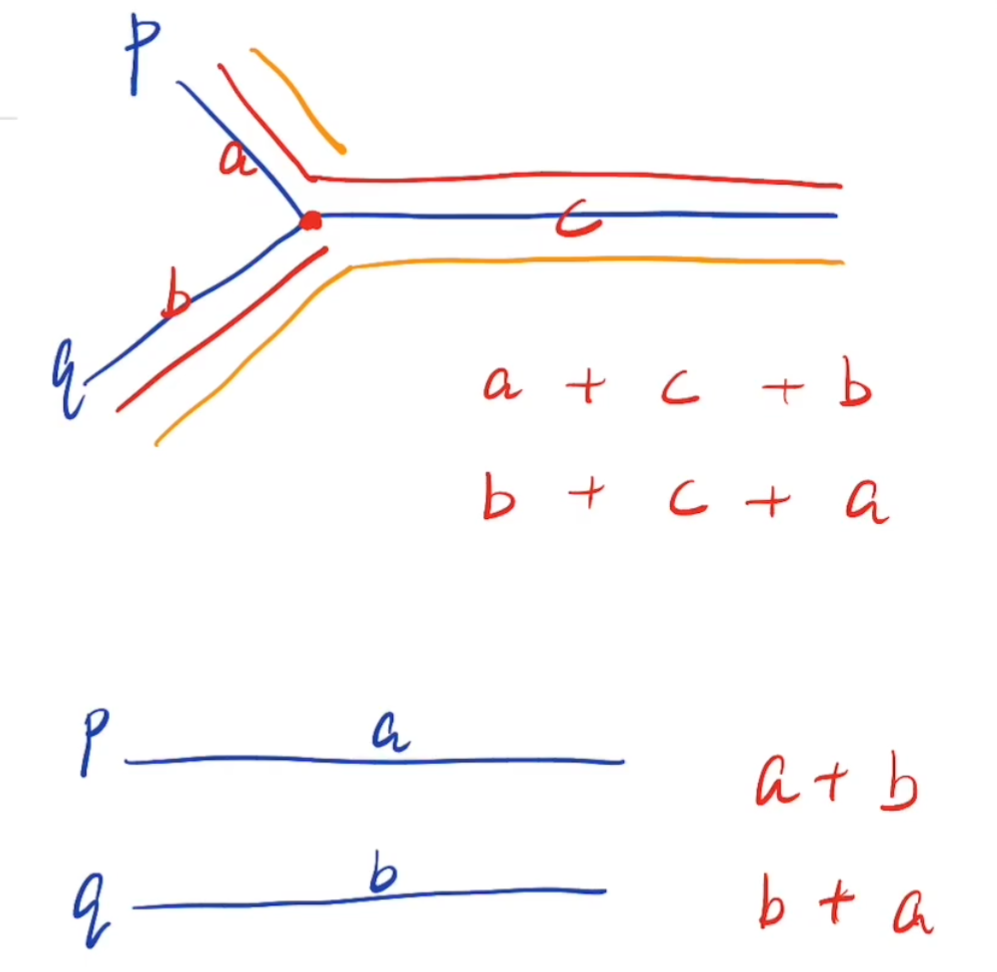 p
a
c
b
q
a + c + b
b + c + a
p a
a + b
q b
b + a